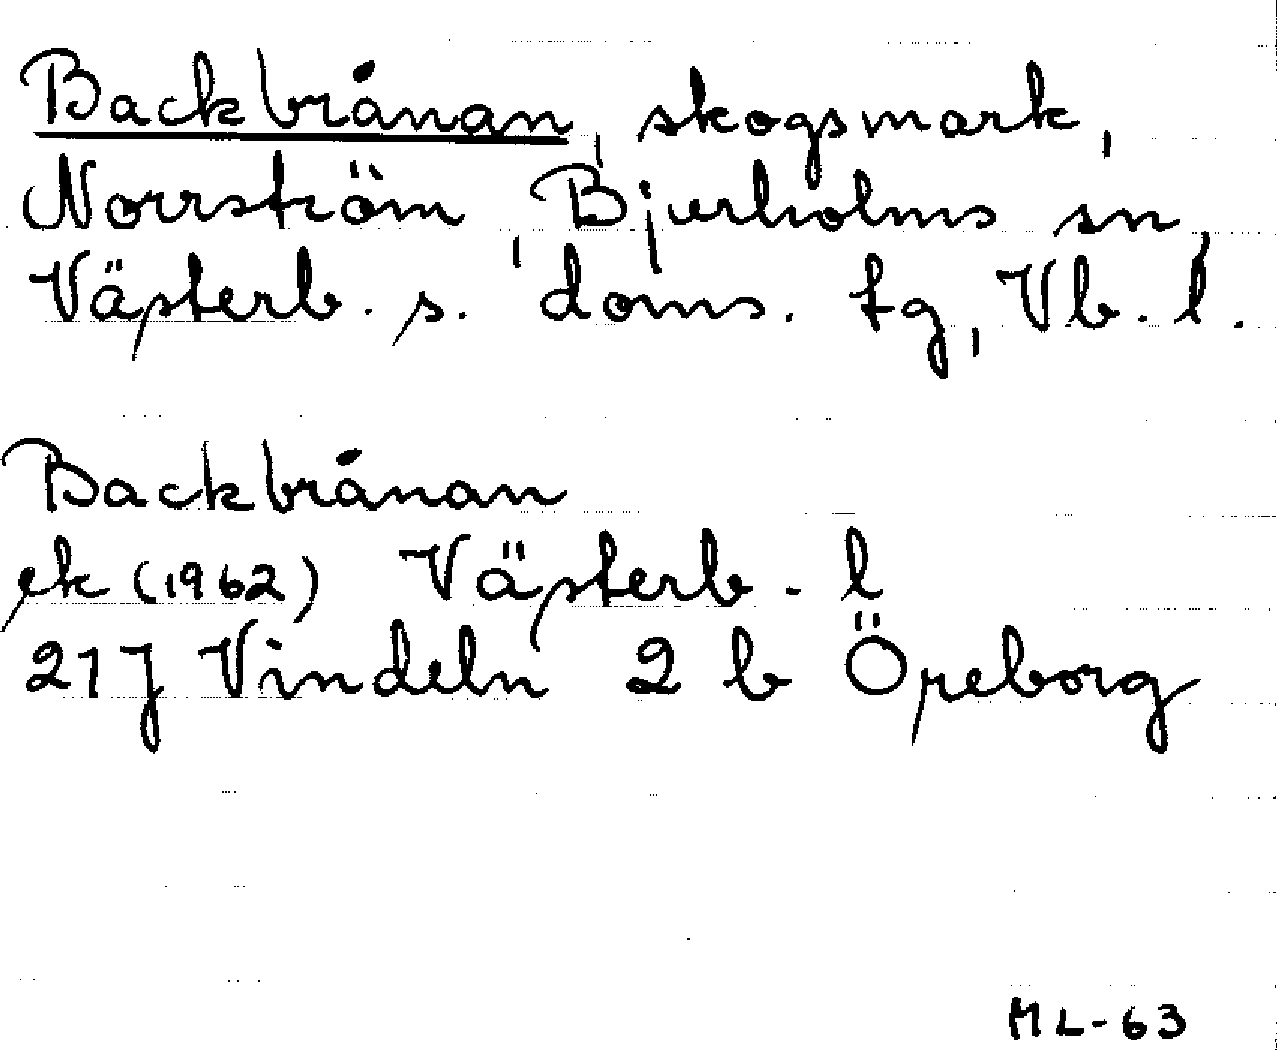 Backbrånan, skogsmark,
Norrström, Bjurholms sn,
Västerb. s. doms. tg, Vb. l.
Backbrånan
ek (1962) Västerb. l
21J Vindeln 2 b Öreborg
ML-63